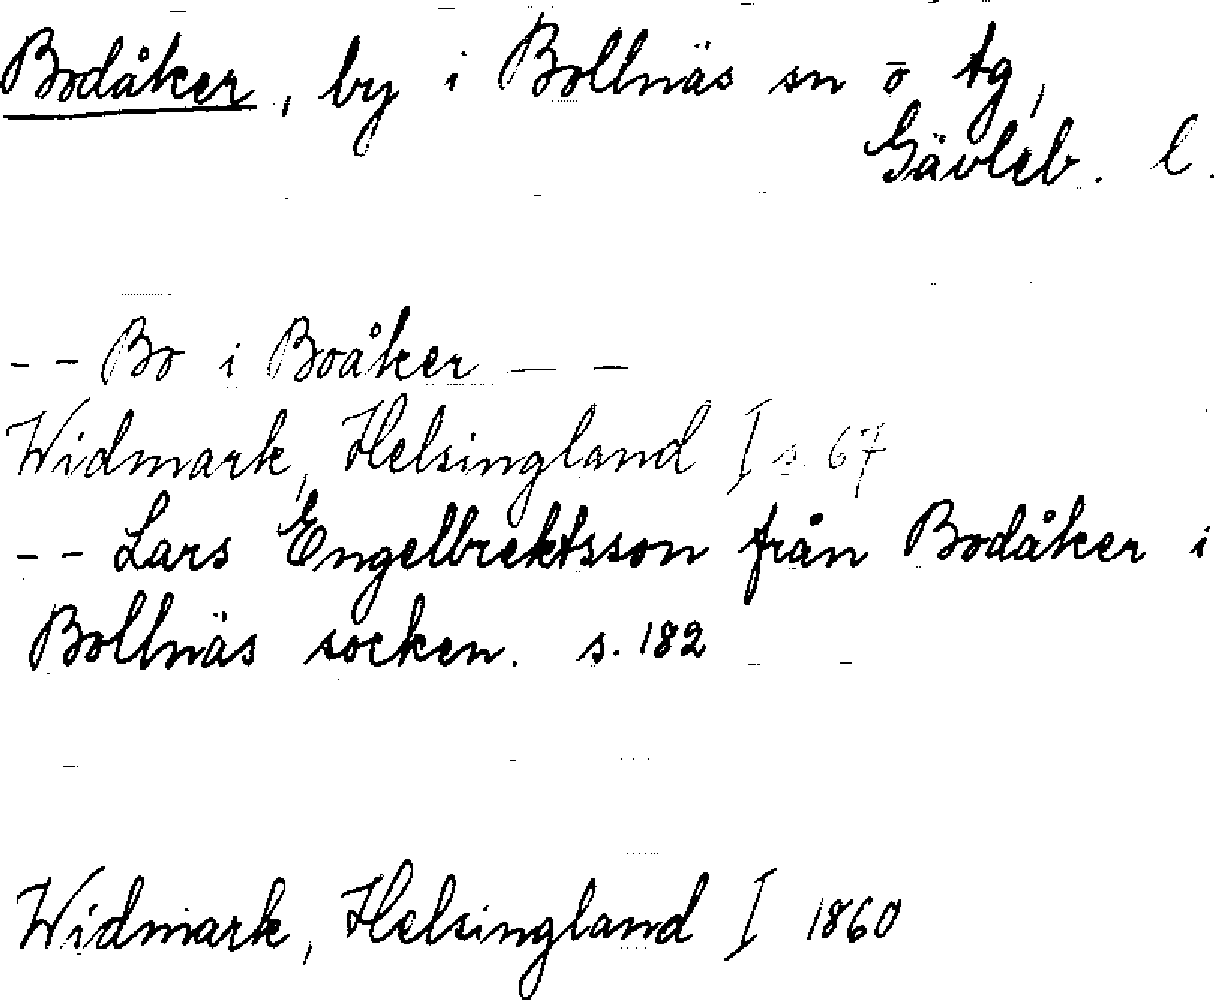 Bodåker, by i Bollnäs sn o tg,
Gävleb. l.
-- Bo i Boåker - -
Widmark, Helsingland I s. 67
-- Lars Engelbrektsson från Bodåker i
Bollnäs socken. s. 182
Widmark, Helsingland I 1860